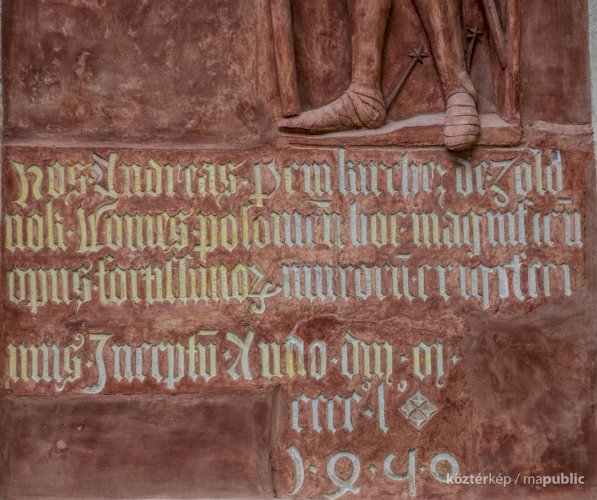 Nos Andreas · Pemkircher de Zolo
nok · Comes posoniēn hoc magnificū
opus · fortissimoꝝ murorū erigi feci
mus Inceptū · Anno · dm · m ·
cccc · l°
1 · 9 · 4 · 0
köztérkép / mapublic